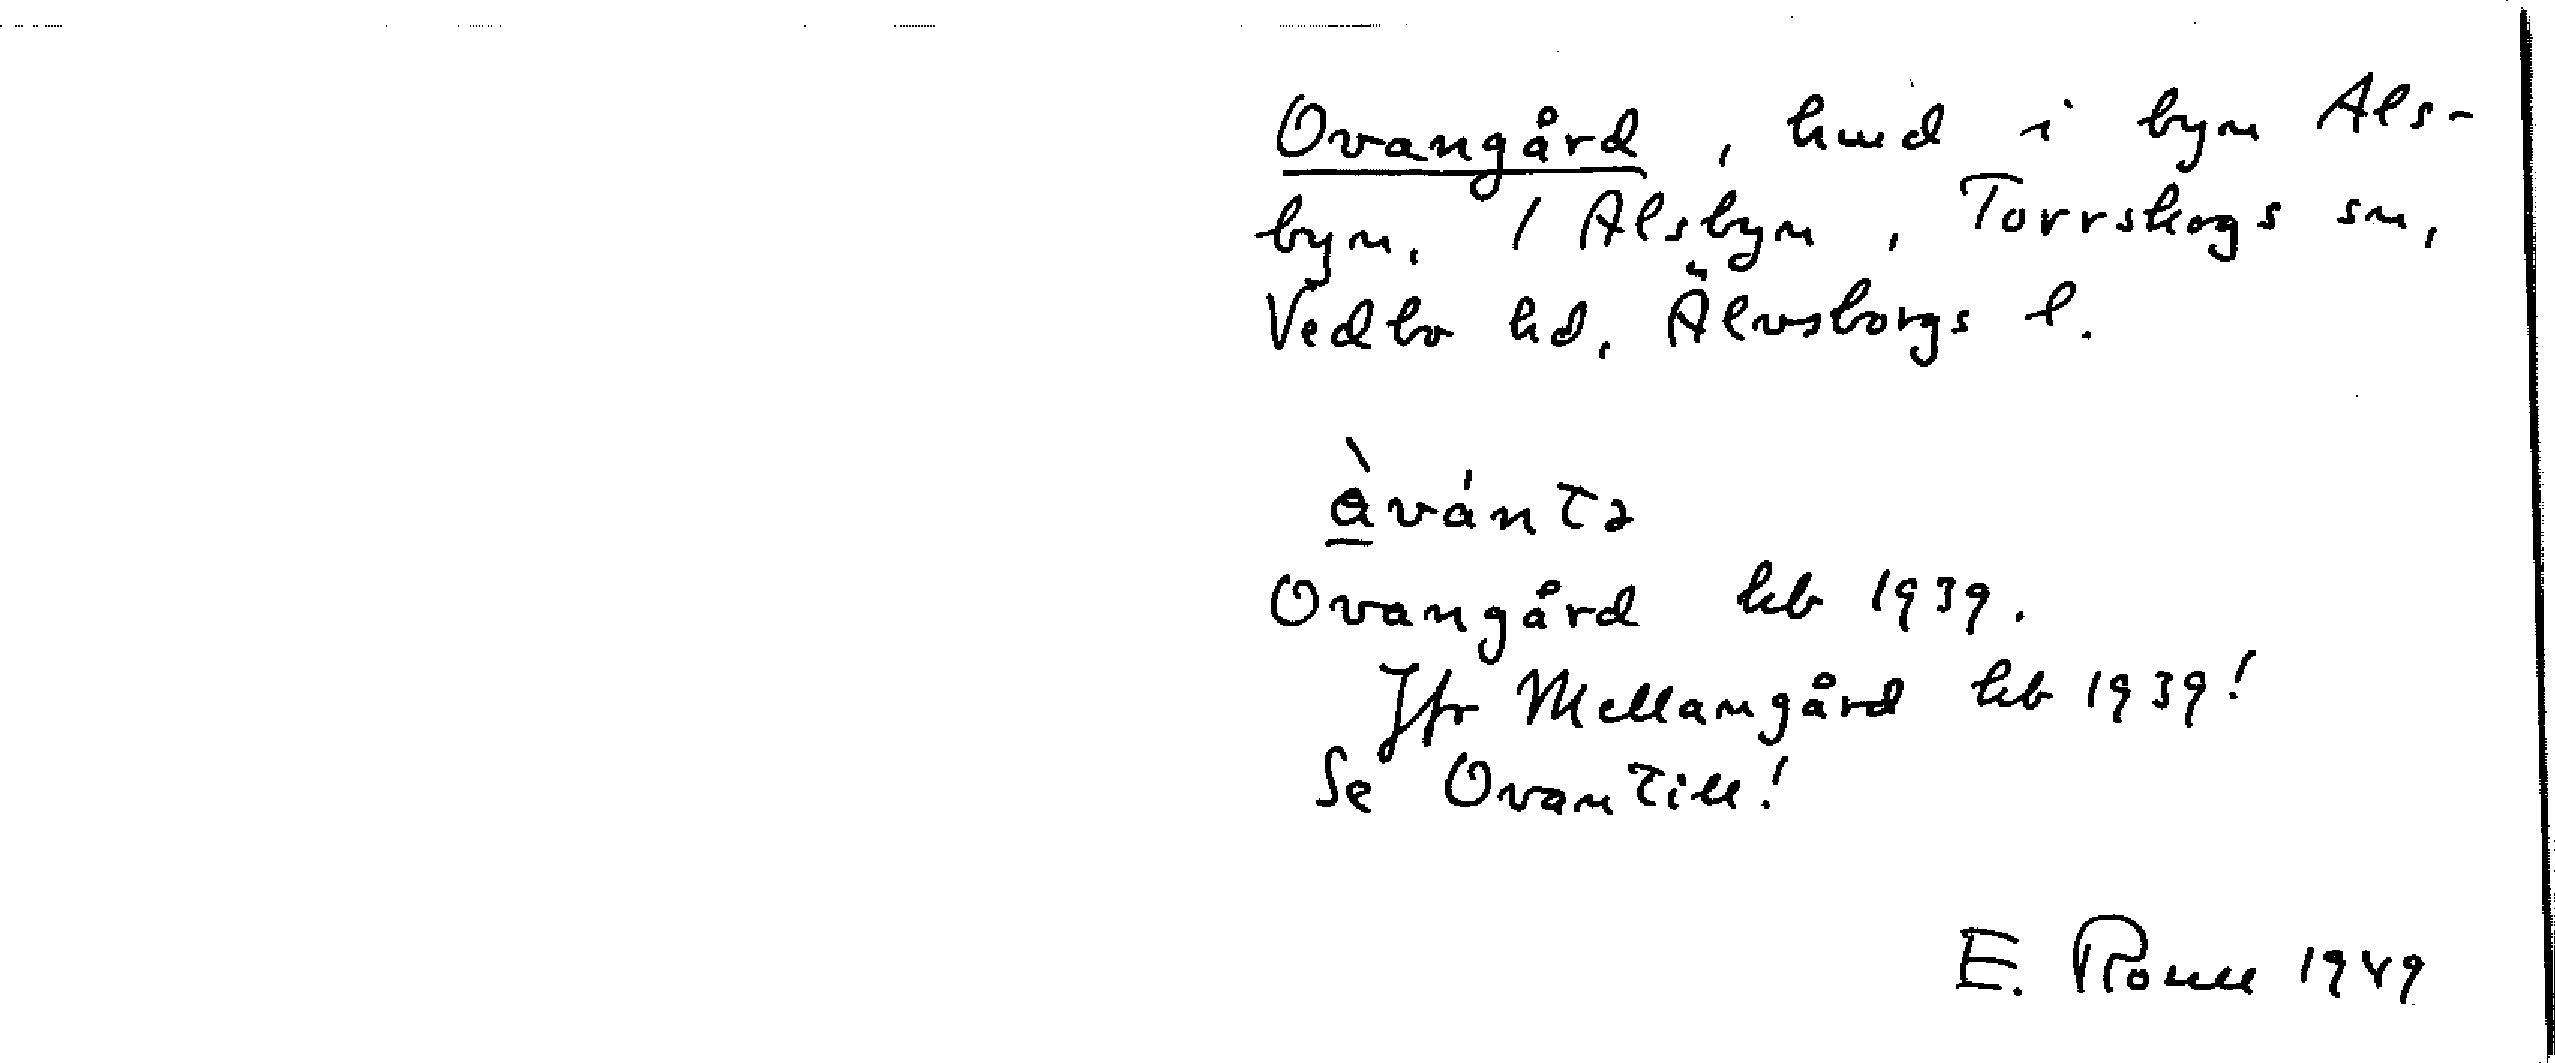 Ovangård, hmd i byn Als-
byn, / Alsbyn, Torrskogs sn,
Vedbo hd, Älvsborgs l.
Ovangård kb 1939.
Jfr Mellangård kb 1939!
Se Ovantill!
E. 1949